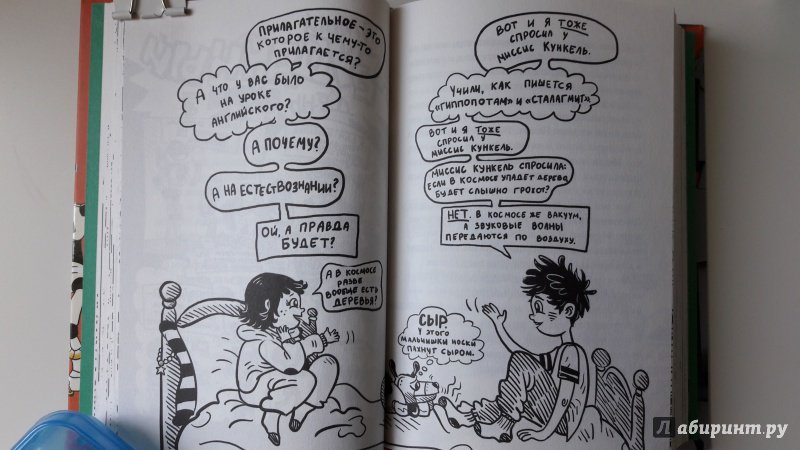 ПРИЛАГАТЕЛЬНОЕ - ЭТО
КОТОРОЕ К ЧЕМУ-ТО
ПРИЛАГАЕТСЯ?
А ЧТО У ВАС БЫЛО
НА УРОКЕ
АНГЛИЙСКОГО?
А ПОЧЕМУ?
А НА ЕСТЕСТВОЗНАНИИ?
ОЙ, А ПРАВДА
БУДЕТ?
А В КОСМОСЕ
РАЗВЕ
ВООБЩЕ ЕСТЬ
ДЕРЕВЬЯ?
ВОТ И Я ТОЖЕ
СПРОСИЛ У
МИССИС КУНКЕЛЬ.
УЧИЛИ, КАК ПИШЕТСЯ
«ГИППОПОТАМ» И «СТАЛАГМИТ».
ВОТ И Я ТОЖЕ
СПРОСИЛ У
МИССИС КУНКЕЛЬ.
МИССИС КУНКЕЛЬ СПРОСИЛА:
ЕСЛИ В КОСМОСЕ УПАДЕТ ДЕРЕВО,
БУДЕТ СЛЫШНО ГРОХОТ?
НЕТ. В КОСМОСЕ ЖЕ ВАКУУМ,
А ЗВУКОВЫЕ ВОЛНЫ
ПЕРЕДАЮТСЯ ПО ВОЗДУХУ.
СЫР.
У ЭТОГО
МАЛЬЧИШКИ НОСКИ
ПАХНУТ СЫРОМ.
Лабиринт.ру